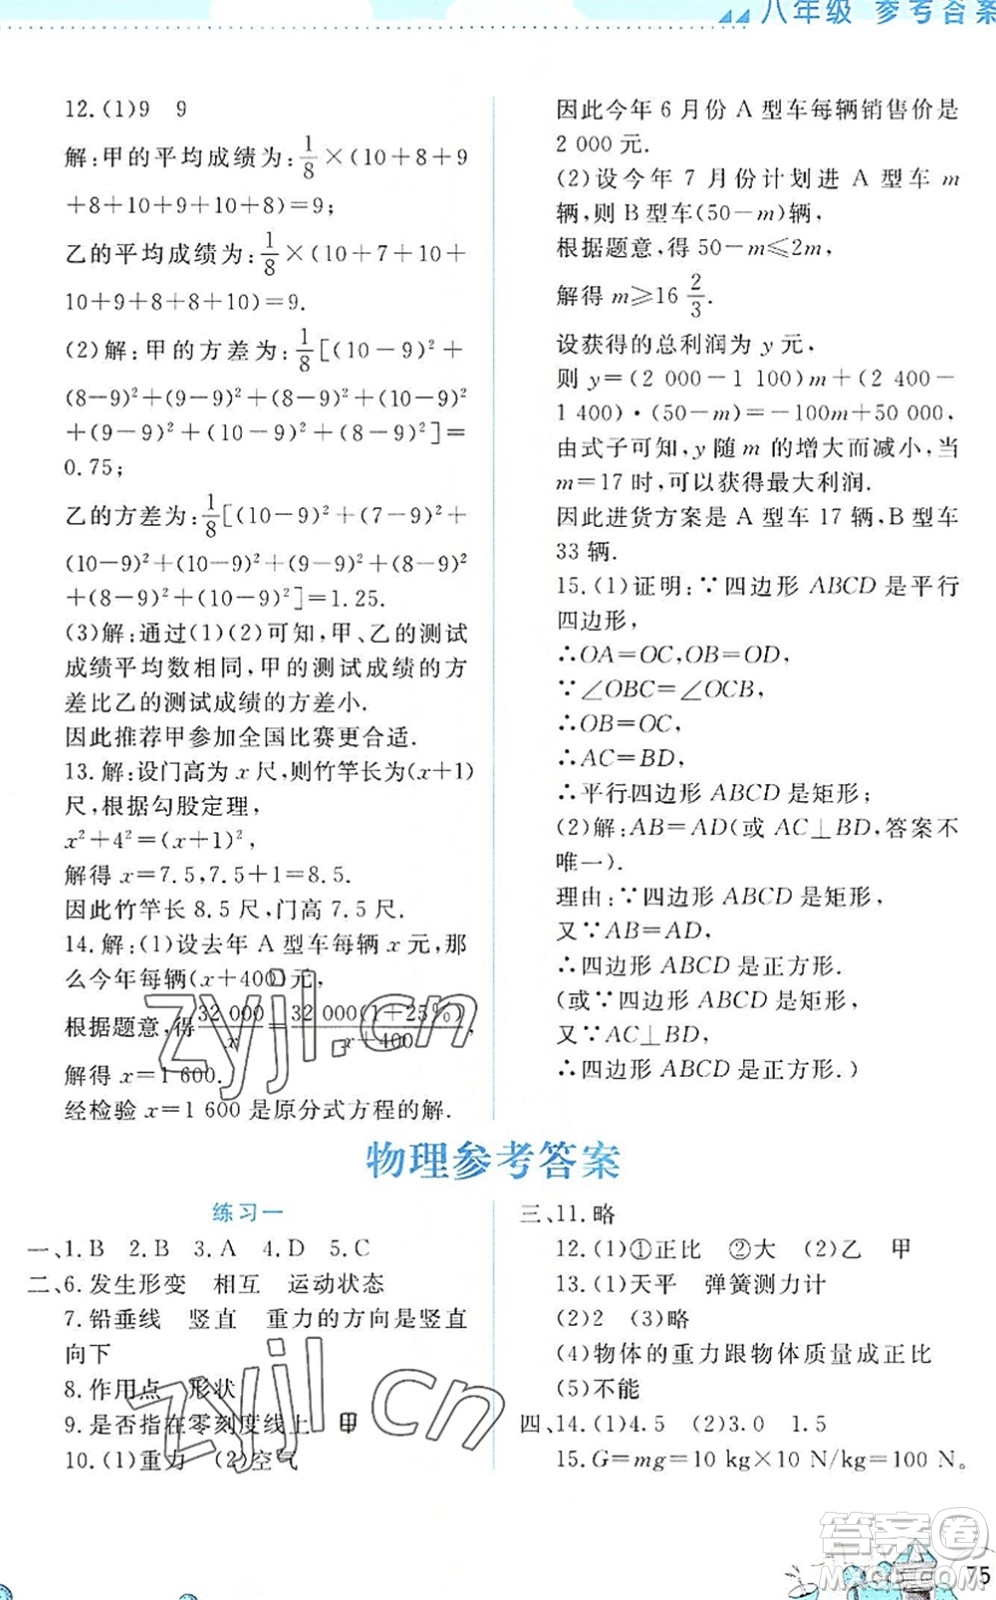 八年级 参考答案
12.(1)9 9
解:甲的平均成绩为:1/8×(10+8+9
+8+10+9+10+8)=9;
乙的平均成绩为:1/8×(10+7+10+
10+9+8+8+10)=9.
(2)解:甲的方差为:1/8[(10-9)²+
(8-9)²+(9-9)²+(8-9)²+(10-9)²
+(9-9)²+(10-9)²+(8-9)²]=
0.75;
乙的方差为:1/8[(10-9)²+(7-9)²+
(10-9)²+(10-9)²+(9-9)²+(8-9)²
+(8-9)²+(10-9)²]=1.25.
(3)解:通过(1)(2)可知,甲、乙的测试
成绩平均数相同,甲的测试成绩的方
差比乙的测试成绩的方差小.
因此推荐甲参加全国比赛更合适.
13.解:设门高为x尺,则竹竿长为(x+1)
尺,根据勾股定理,
x²+4²=(x+1)²,
解得x=7.5,7.5+1=8.5.
因此竹竿长8.5尺,门高7.5尺.
14.解:(1)设去年A型车每辆x元,那
么今年每辆(x+400)元,
根据题意,得32 000/x=32 000(1+25%)/(x+400),
解得x=1 600.
经检验x=1 600是原分式方程的解.
因此今年6月份A型车每辆销售价是
2 000元.
(2)设今年7月份计划进A型车m
辆,则B型车(50-m)辆,
根据题意,得50-m≤2m,
解得m≥16 2/3.
设获得的总利润为y元,
则y=(2 000-1 100)m+(2 400-
1 400)·(50-m)=-100m+50 000,
由式子可知,y随m的增大而减小,当
m=17时,可以获得最大利润.
因此进货方案是A型车17辆,B型车
33辆.
15.(1)证明:∵四边形ABCD是平行
四边形,
∴OA=OC,OB=OD,
∵∠OBC=∠OCB,
∴OB=OC,
∴AC=BD,
∴平行四边形ABCD是矩形;
(2)解:AB=AD(或AC⊥BD,答案不
唯一).
理由:∵四边形ABCD是矩形,
又∵AB=AD,
∴四边形ABCD是正方形.
(或∵四边形ABCD是矩形,
又∵AC⊥BD,
∴四边形ABCD是正方形.)
物理参考答案
练习一
一、1.B 2.B 3.A 4.D 5.C
二、6.发生形变 相互 运动状态
7.铅垂线 竖直 重力的方向是竖直
向下
8.作用点 形状
9.是否指在零刻度线上 甲
10.(1)重力 (2)空气
三、11.略
12.(1)①正比 ②大 (2)乙 甲
13.(1)天平 弹簧测力计
(2)2 (3)略
(4)物体的重力跟物体质量成正比
(5)不能
四、14.(1)4.5 (2)3.0 1.5
15.G=mg=10 kg×10 N/kg=100 N。
75
zyjl.cn
zyjl.cn
答案圈
MXQE.COM